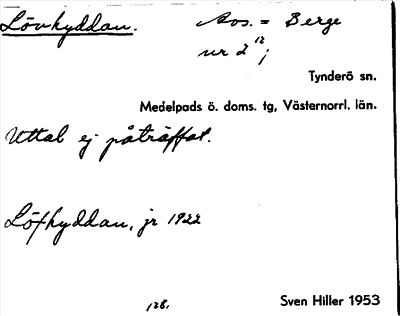 Lövhyddan.
Avs. = Berge
nr 2 12;
Tynderö sn.
Medelpads ö. doms. tg, Västernorrl. län.
Uttal ej påträffat.
Löfhyddan, jr 1922
128.
Sven Hiller 1953